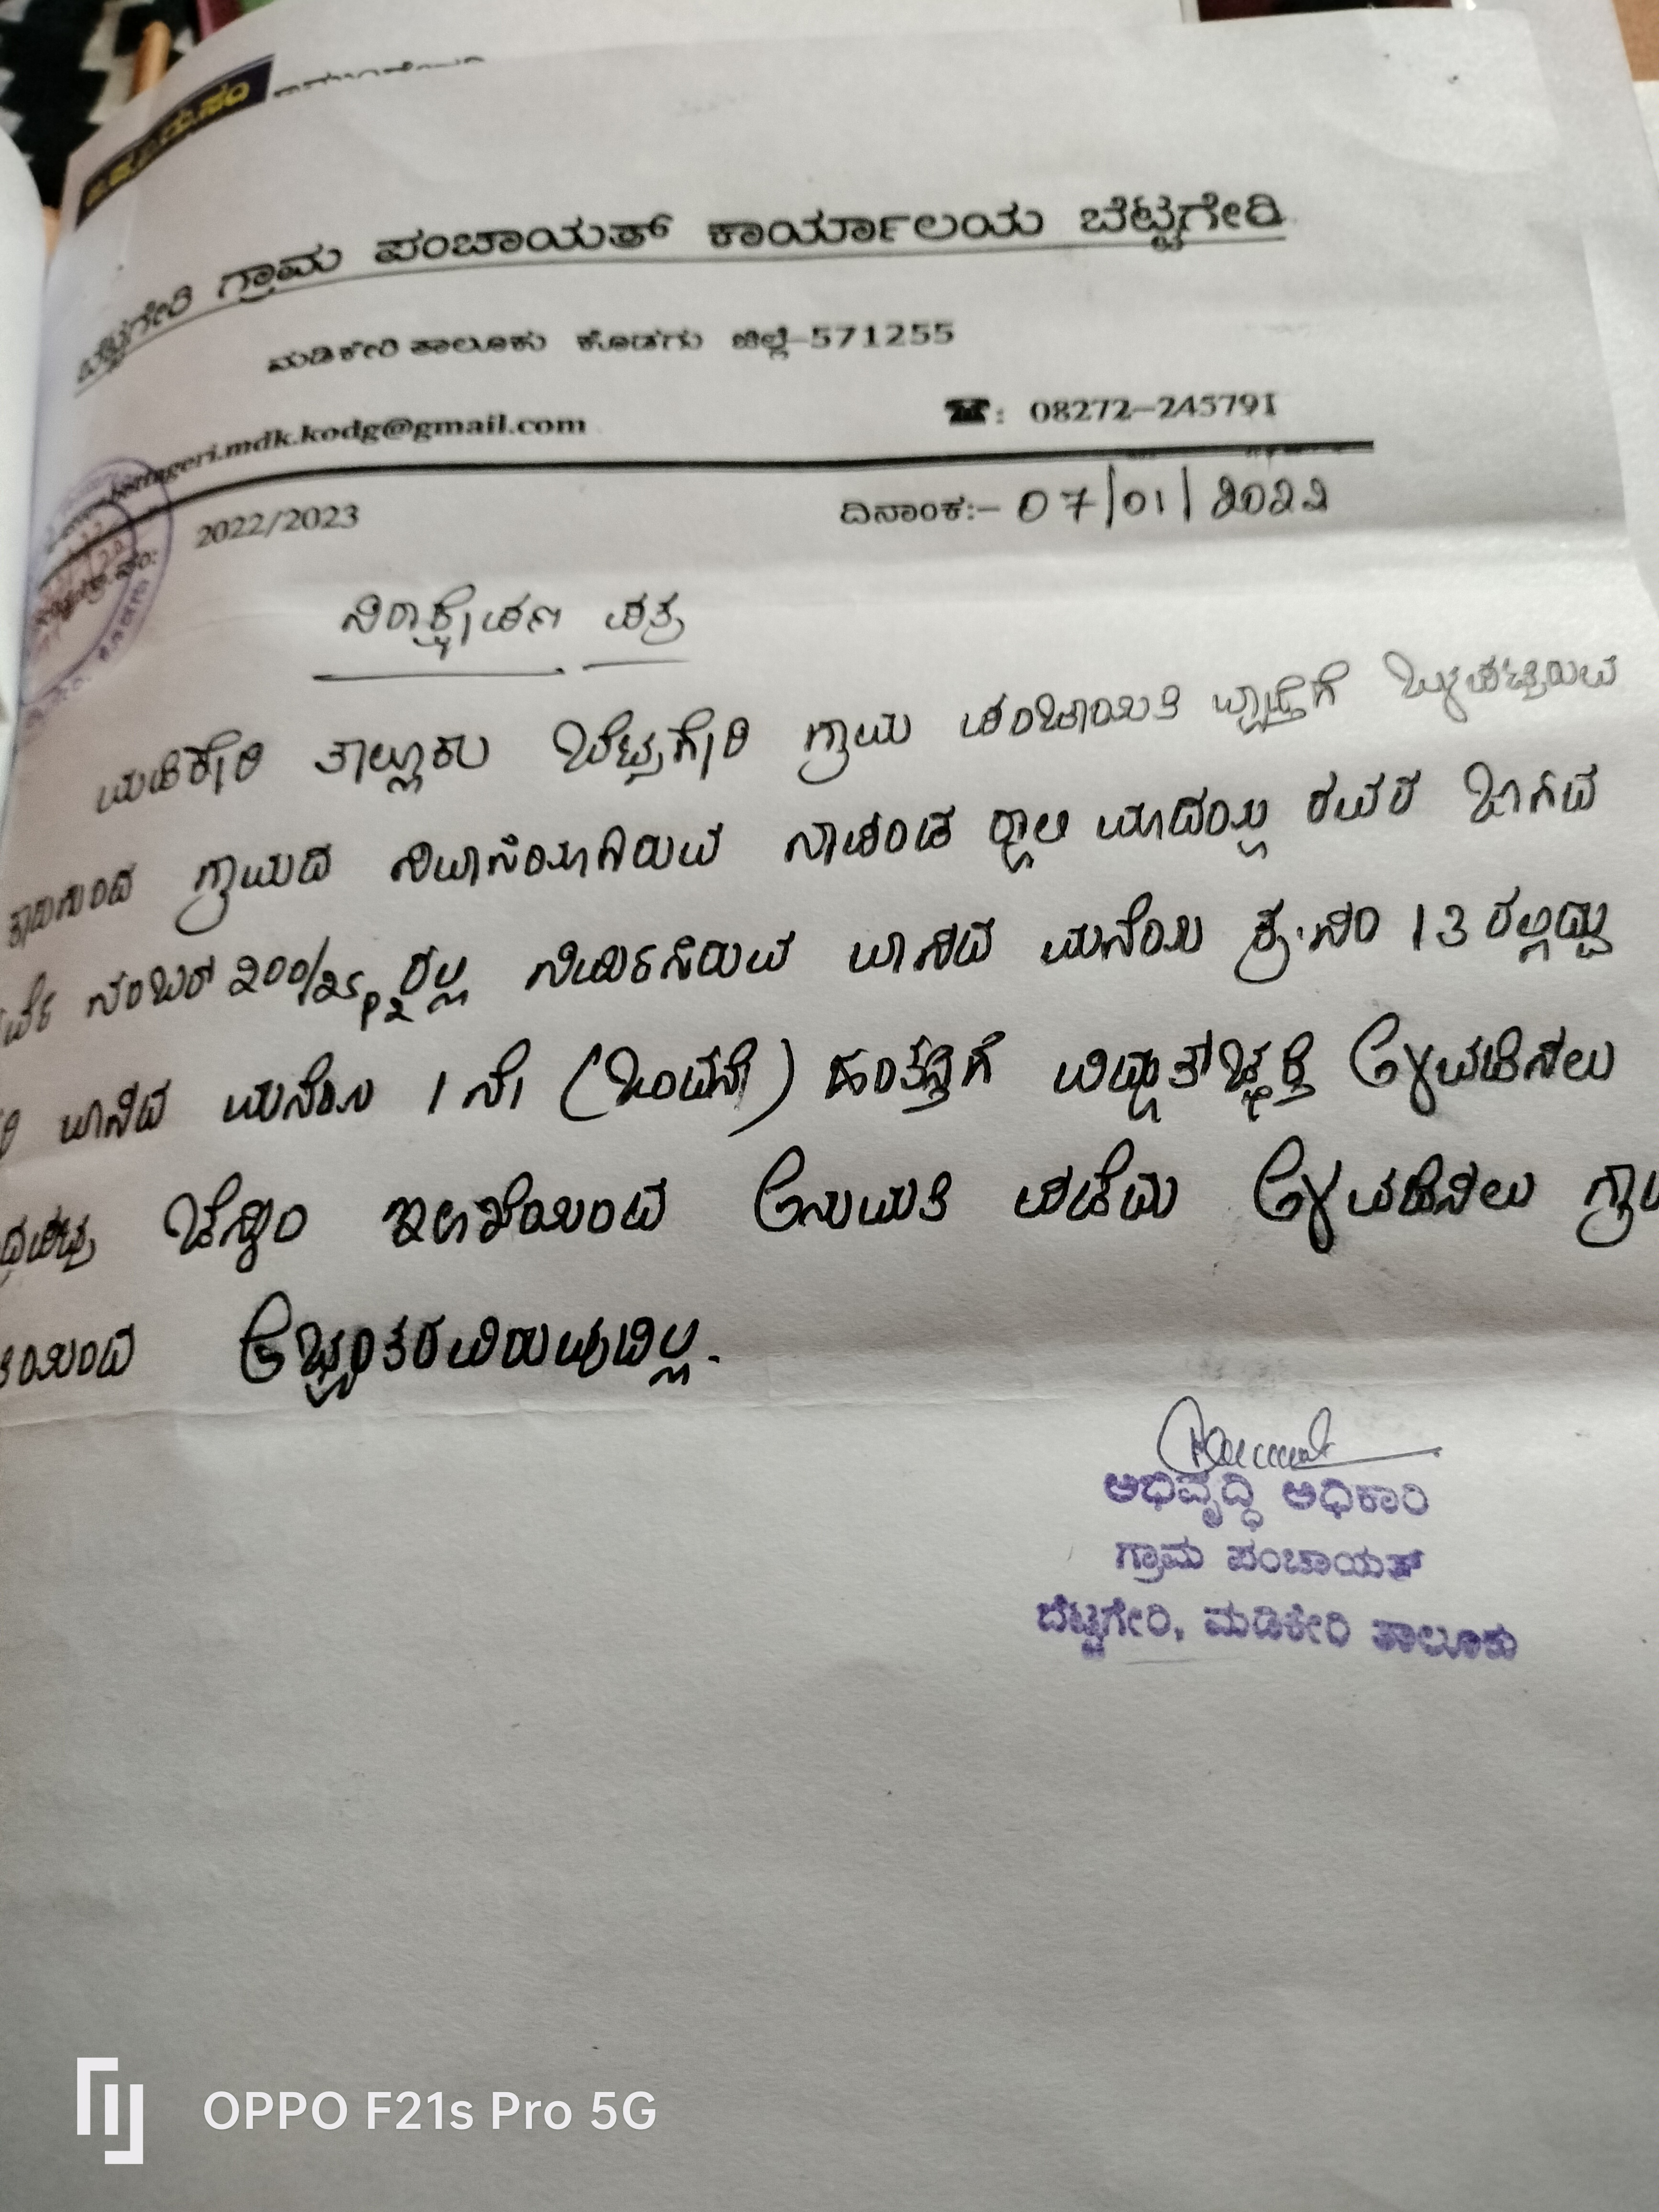 ಬೆಟ್ಟಗೇರಿ ಗ್ರಾಮ ಪಂಚಾಯತ್ ಕಾರ್ಯಾಲಯ ಬೆಟ್ಟಗೇರಿ
ಮಡಿಕೇರಿ ತಾಲೂಕು ಕೊಡಗು ಜಿಲ್ಲೆ-571255
bettageri.mdk.kodg@gmail.com ☎: 08272-245791
2022/2023 ದಿನಾಂಕ:- 07/01/2022
ನಿರಾಕ್ಷೇಪಣ ಪತ್ರ
ಮಡಿಕೇರಿ ತಾಲ್ಲೂಕು ಬೆಟ್ಟಗೇರಿ ಗ್ರಾಮ ಪಂಚಾಯತಿ ವ್ಯಾಪ್ತಿಗೆ ಒಳಪಟ್ಟಿರುವ
ಗ್ರಾಮದ ನಿವಾಸಿಯಾಗಿರುವ ನಾಪಂಡ ಮಾದಯ್ಯ ರವರ ಬಾಗಿವ
ಸರ್ವೆ ನಂಬರ್ 200/25P2 ರಲ್ಲಿ ನಿರ್ಮಿಸಿರುವ ವಾಸದ ಮನೆಯ ಕ್ರ.ಸಂ 13 ರಲ್ಲಿದ್ದು
ವಾಸದ ಮನೆಯ 1 ನೇ (ಒಂದನೇ) ಹಂತಸ್ತಿಗೆ ವಿದ್ಯುತ್ಚ್ಛಕ್ತಿ ಅಳವಡಿಸಲು
ಚೆಸ್ಕಾಂ ಇಲಾಖೆಯಿಂದ ಅನುಮತಿ ಪಡೆದು ಅಳವಡಿಸಲು ಗ್ರಾಮ
ಅಭ್ಯಂತರವಿರುವುದಿಲ್ಲ.
ಅಭಿವೃದ್ಧಿ ಅಧಿಕಾರಿ
ಗ್ರಾಮ ಪಂಚಾಯತ್
ಬೆಟ್ಟಗೇರಿ, ಮಡಿಕೇರಿ ತಾಲೂಕು
OPPO F21s Pro 5G